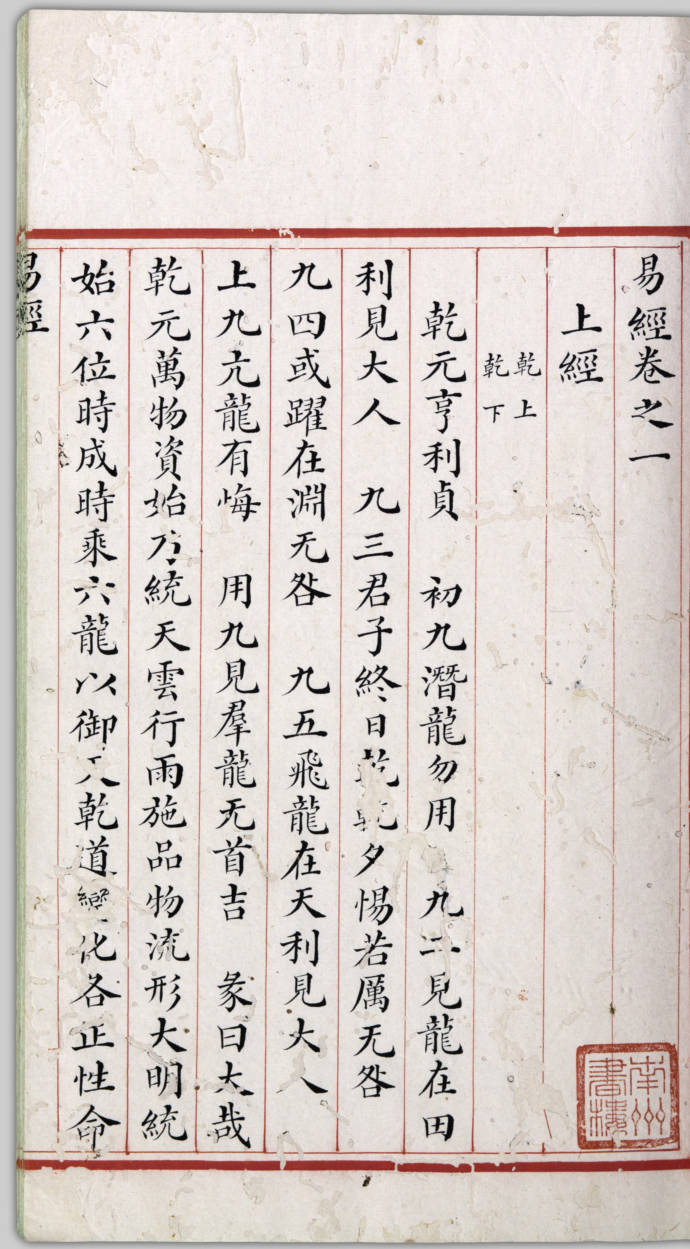 易經卷之一
上經
乾上
乾下
乾元亨利貞　初九潛龍勿用　九二見龍在田
利見大人　九三君子終日乾乾夕惕若厲无咎
九四或躍在淵无咎　九五飛龍在天利見大人
上九亢龍有悔　用九見羣龍无首吉　彖曰大哉
乾元萬物資始乃統天雲行雨施品物流形大明統
始六位時成時乘六龍以御天乾道變化各正性命
易經
南州
書樓